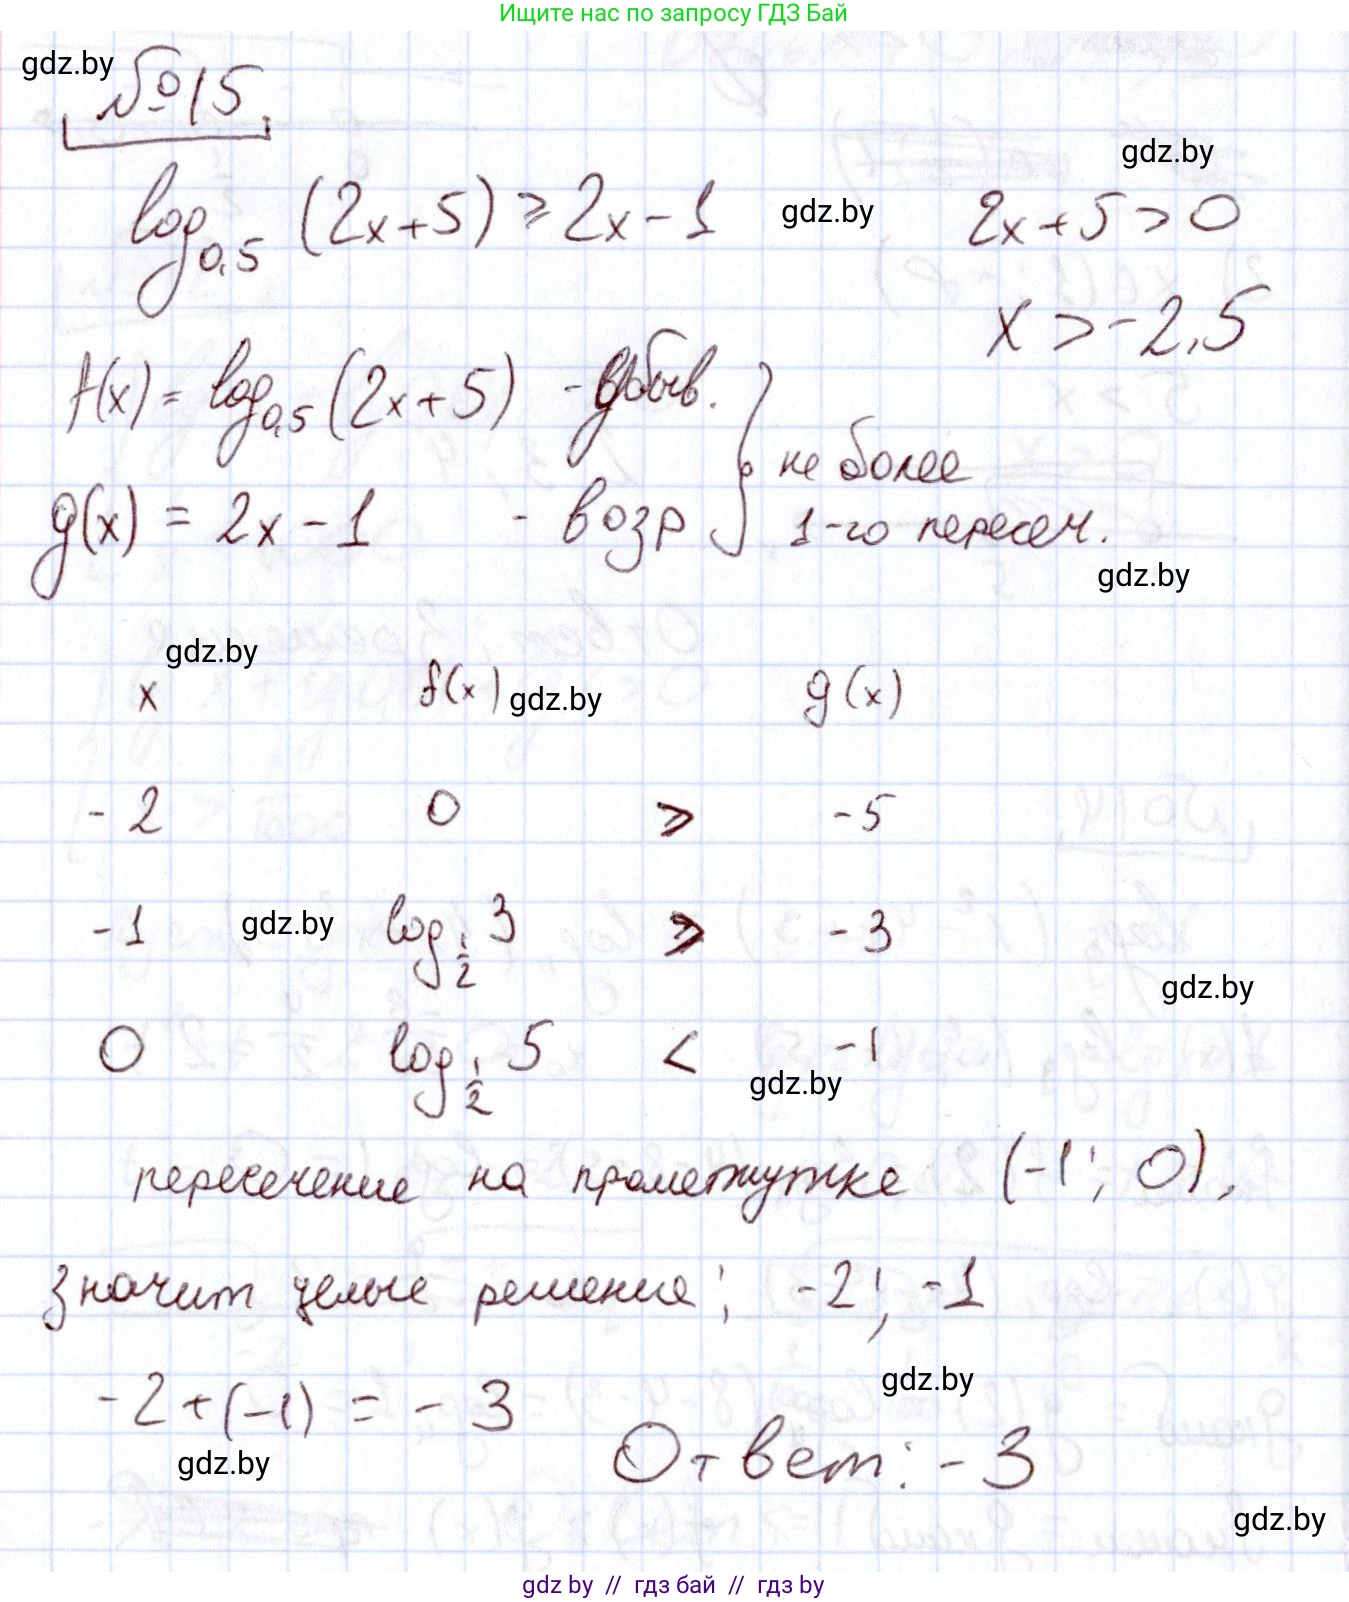 Ищите нас по запросу ГДЗ Бай
gdz.by
№15
gdz.by
log₀,₅ (2x+5) ⩾ 2x-1 gdz.by 2x+5>0
x>-2,5
f(x) = log₀,₅ (2x+5) - убыв.
не более
g(x) = 2x-1 - возр
1-го пересеч.
gdz.by
gdz.by
x f(x) gdz.by g(x)
-2 0 ⩾ -5
-1 gdz.by log½ 3 ⩾ -3
gdz.by
0 log½ 5 < -1
gdz.by
пересечение на промежутке (-1; 0),
значит целые решение; -2; -1
gdz.by
-2+(-1) = -3
gdz.by
Ответ: -3
gdz.by
gdz by // гдз бай // гдз by